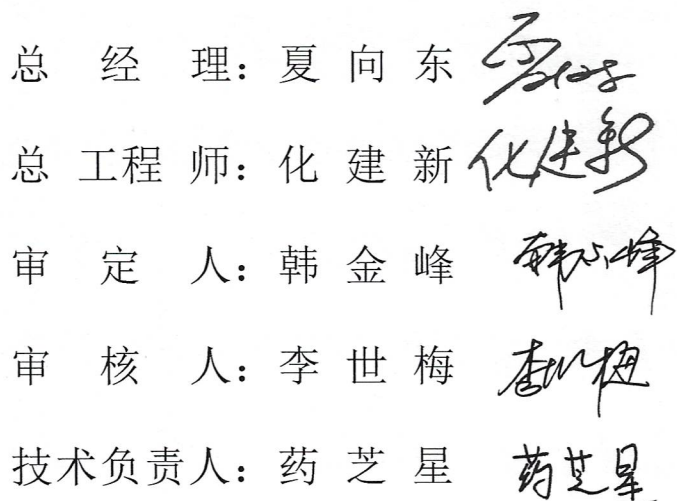 总经理：夏向东 夏向东
总工程师：化建新 化建新
审定人：韩金峰 韩金峰
审核人：李世梅 李世梅
技术负责人：药芝星 药芝星